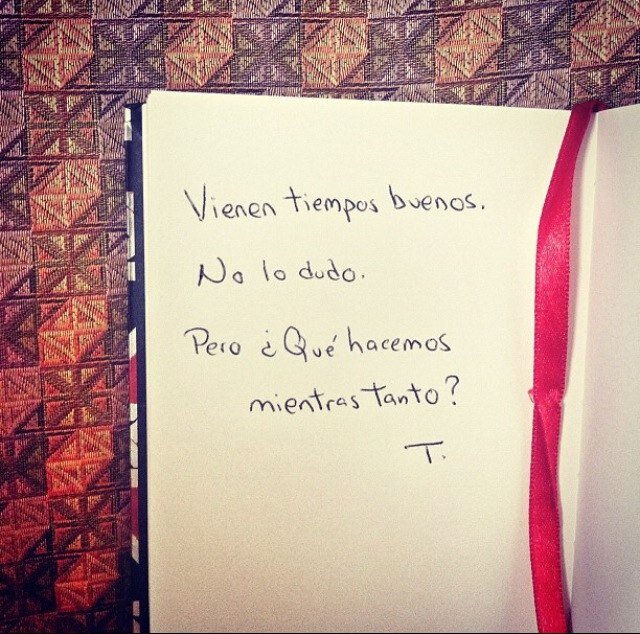 Vienen tiempos buenos.
No lo dudo.
Pero ¿Qué hacemos
mientras tanto?
T.